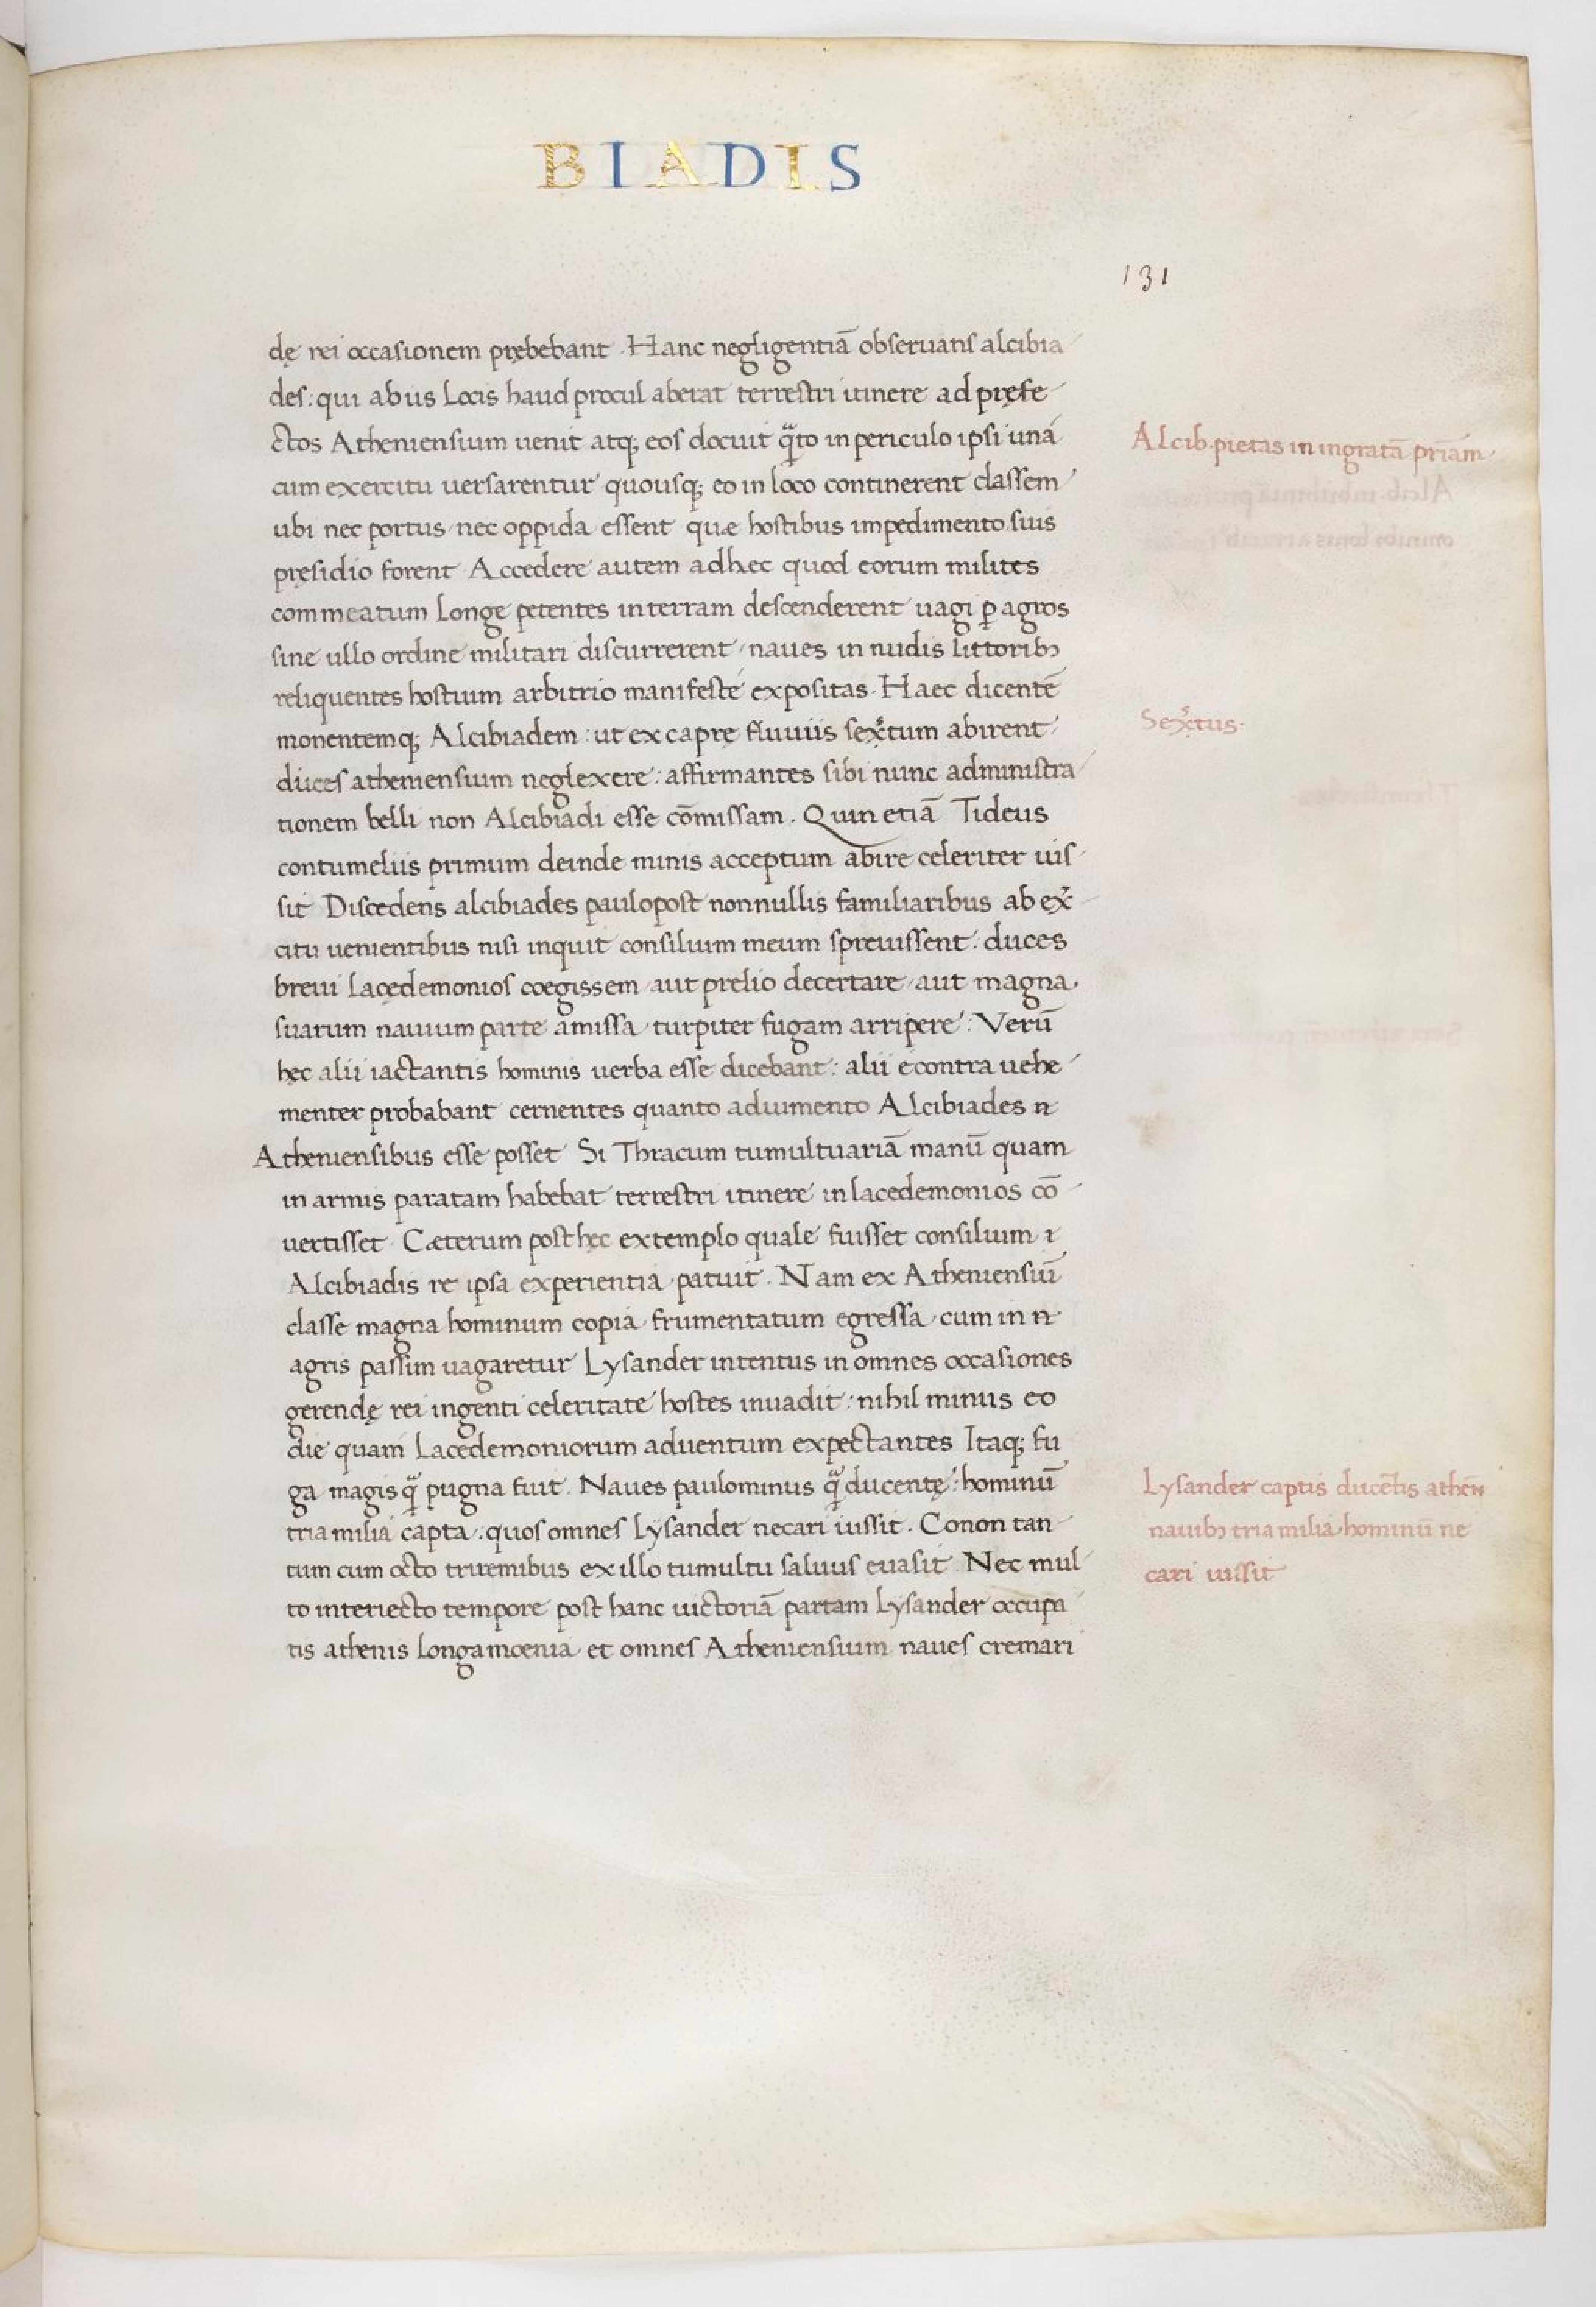 BIADIS
131
dę rei occasionem prębebant. Hanc negligentiā obseruans alcibia
des: qui ab iis locis haud procul aberat terrestri itinere ad pręfe
ctos Atheniensium uenit atq; eos docuit q̃to in periculo ipsi una
cum exercitu uersarentur quousq; eo in loco continerent classem
ubi nec portus nec oppida essent quæ hostibus impedimento suis
pręsidio forent Accedere autem ad hec quod eorum milites
commeatum longe petentes in terram descenderent uagi ꝑ agros
sine ullo ordine militari discurrerent, naues in nudis littoribꝫ
reliquentes hostium arbitrio manifeste expositas. Haec dicentē
monentemq; Alcibiadem: ut ex capre fluuiis sexctum abirent
duces atheniensium neglexere: affirmantes sibi nunc administra
tionem belli non Alcibiadi esse cōmissam. Quin etiā Tideus
contumeliis primum deinde minis acceptum abire celeriter uis
sit Discedens alcibiades paulopost nonnullis familiaribus ab ex̃
citu uenientibus nisi inquit consilium meum spreuissent: duces
breui lacędemonios coegissem aut prelio decertare aut magna
suarum nauium parte amissa turpiter fugam arripere: Verū
hęc alii iactantis hominis uerba esse dicebant: alii econtra uehe
menter probabant cernentes quanto adiumento Alcibiades n
Atheniensibus esse posset Si Thracum tumultuariā manū quam
in armis paratam habebat terrestri itinere in lacedemonios cō
uertisset. Cæterum post hęc extemplo quale fuisset consilium i
Alcibiadis re ipsa experientia patuit. Nam ex Atheniensiū
classe magna hominum copia frumentatum egressa cum in n
agris passim uagaretur Lysander intentus in omnes occasiones
gerendę rei ingenti celeritate hostes inuadit: nihil minus eo
die quam Lacedemoniorum aduentum expectantes Itaq; fu
ga magis q̃ pugna fuit. Naues paulominus q̃ ducentę: hominū
tria milia capta: quos omnes Lysander necari iussit. Conon tan
tum cum octo triremibus ex illo tumultu saluus euasit Nec mul
to interiecto tempore post hanc uictoriā partam Lysander occupa
tis athenis longa moenia et omnes Atheniensium naues cremari
Alcib. pietas in ingratā pr̄iam.
Sexctus.
Lysander captis ducētis athēn
nauibꝫ tria milia hominū ne
cari iussit